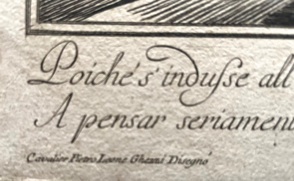 Poiché s'indusse all
A pensar seriament
Cavalier Pietro Leone Ghezzi Disegnò